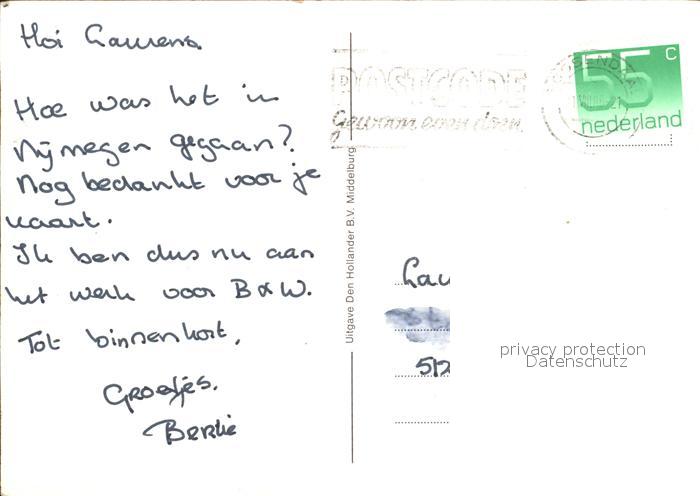 Hoi Laurens
Hoe was het in
Nijmegen gegaan?
Nog bedankt voor je
kaart.
Ik ben dus nu aan
het werk voor B&W.
Tot binnenkort,
Groetjes.
Bertie
Uitgave Den Hollander B.V. Middelburg
POSTCODE
Gewoon even doen
55 c
nederland
Lau
512
privacy protection
Datenschutz